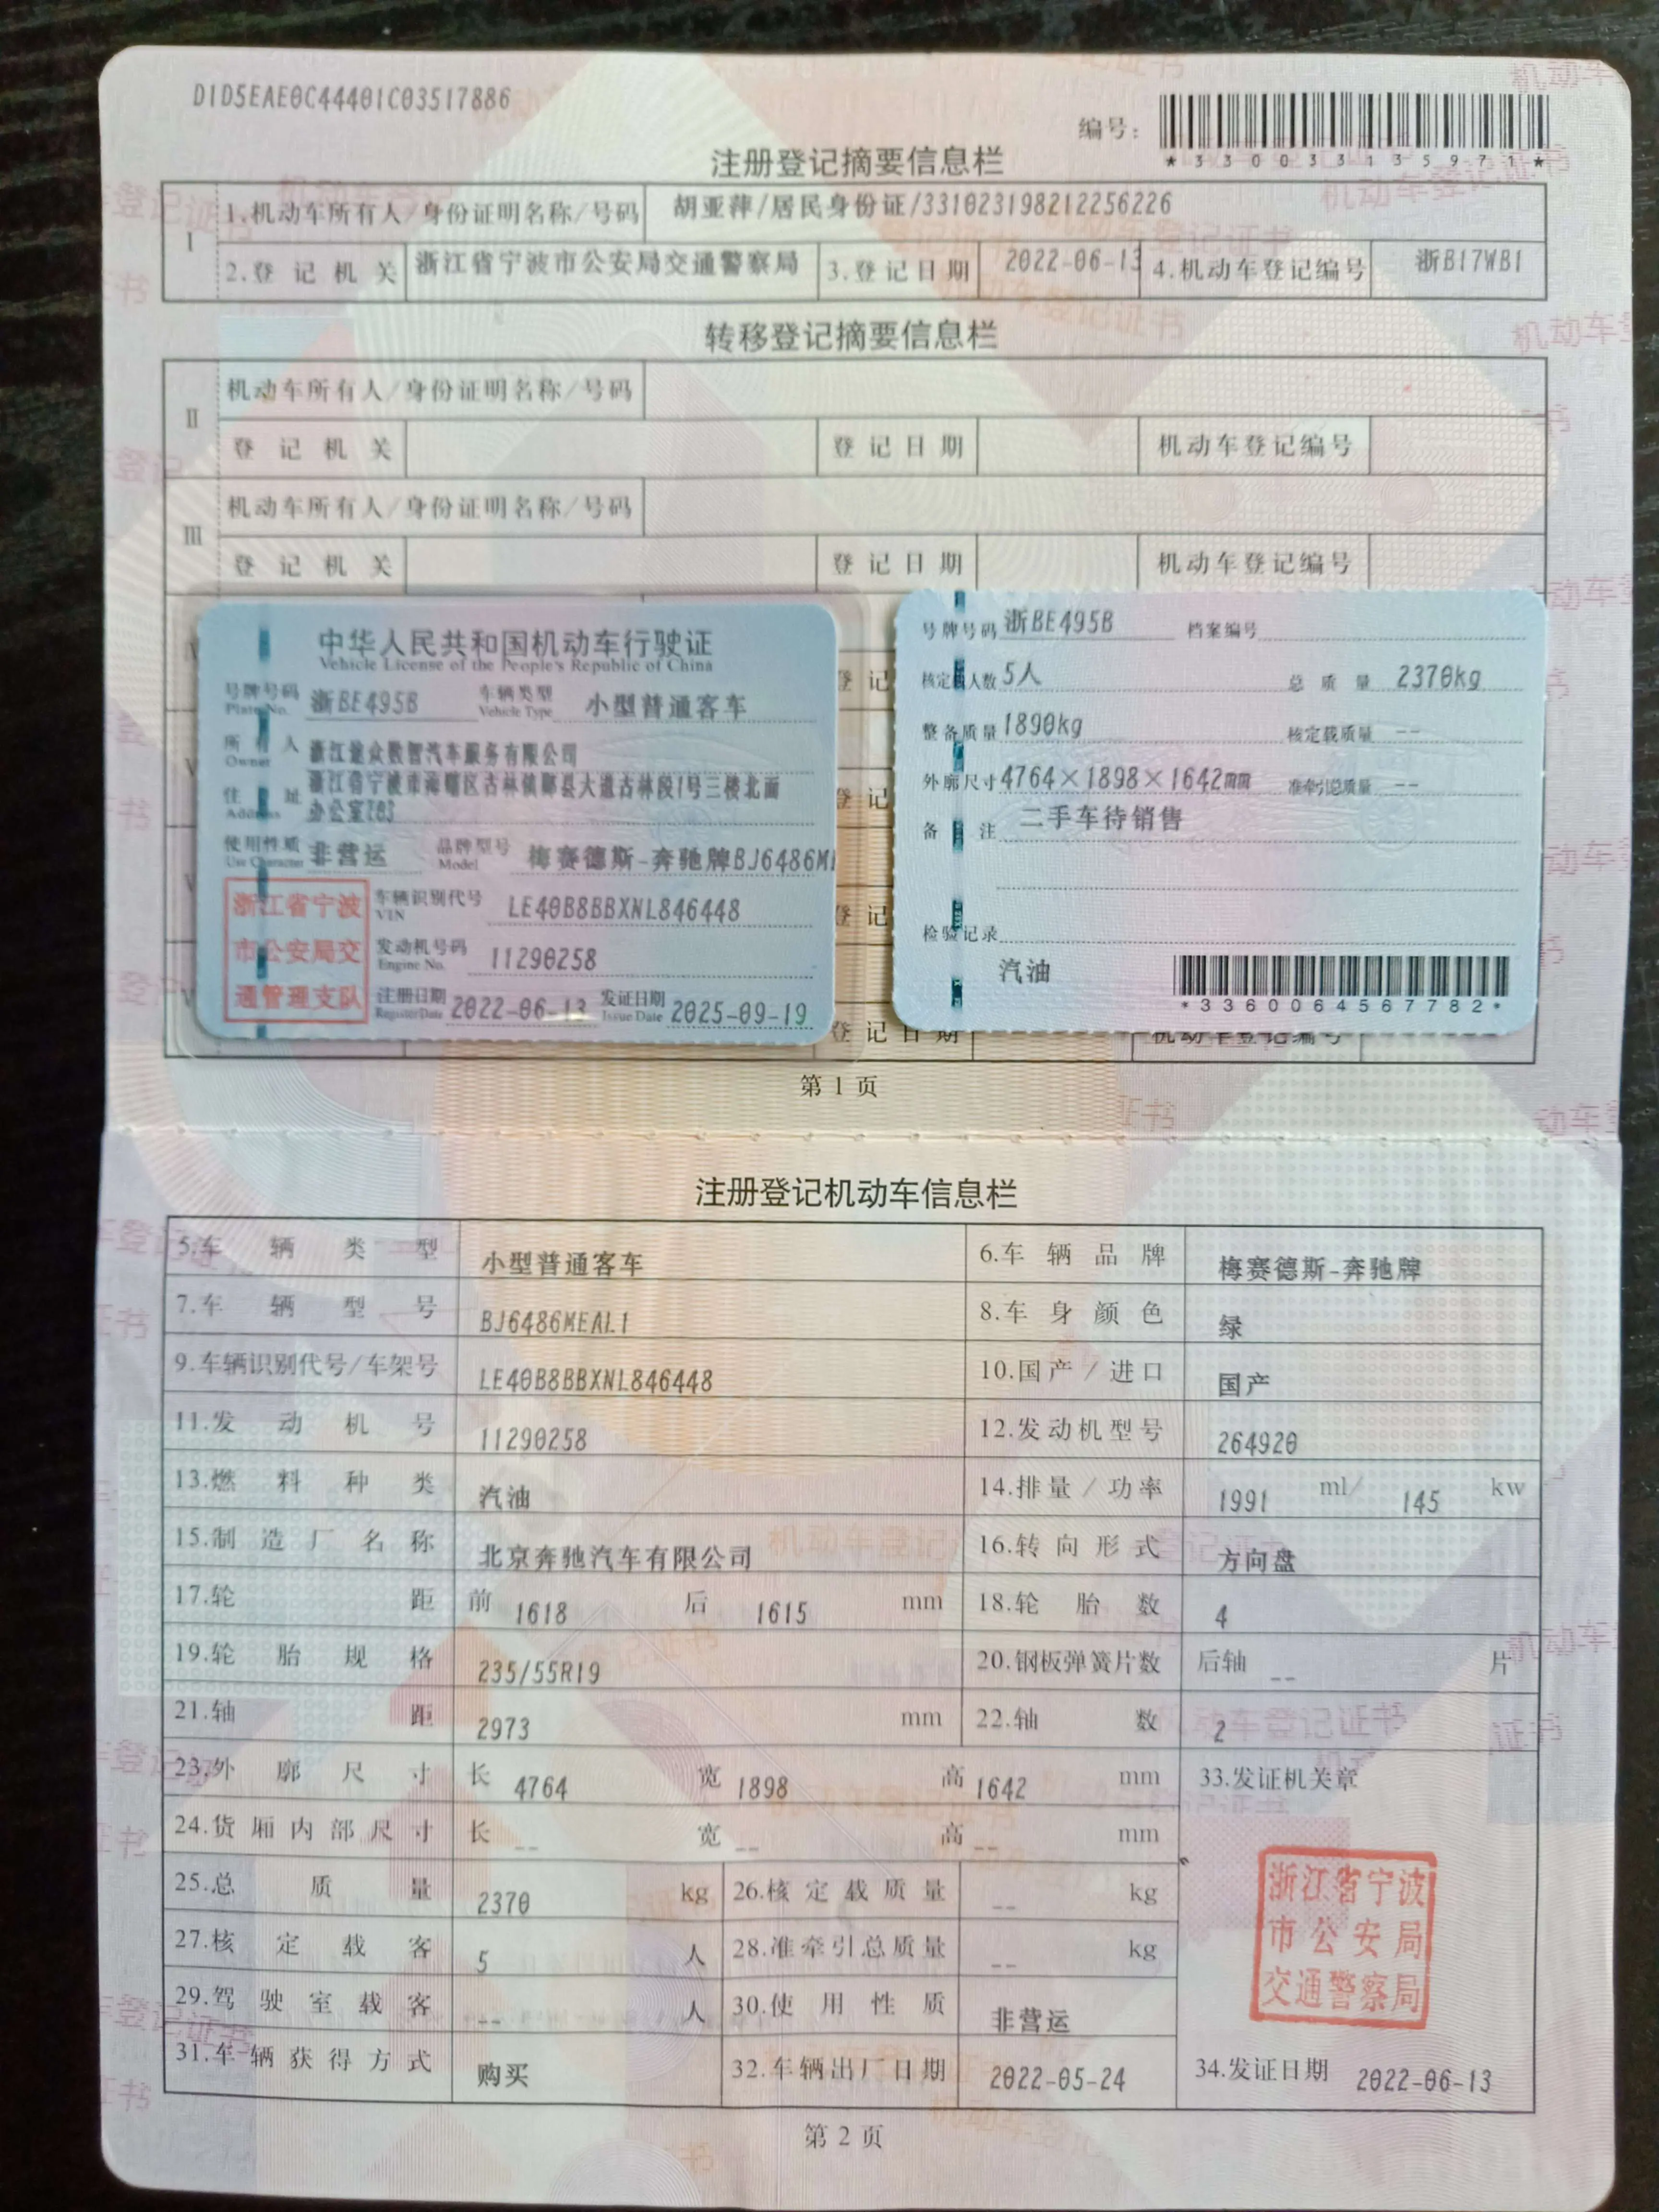 D1D5EAE0C44401C03517886
编号:
*330033135971*
注册登记摘要信息栏
I 1.机动车所有人/身份证明名称/号码 胡亚萍/居民身份证/331023198212256226
2.登记机关 浙江省宁波市公安局交通警察局 3.登记日期 2022-06-13 4.机动车登记编号 浙B17WB1
转移登记摘要信息栏
II 机动车所有人/身份证明名称/号码
登记机关 登记日期 机动车登记编号
III 机动车所有人/身份证明名称/号码
登记机关 登记日期 机动车登记编号
中华人民共和国机动车行驶证
Vehicle License of the People's Republic of China
号牌号码 浙BE495B 车辆类型 小型普通客车
Plate No. Vehicle Type
所有人 浙江 众数智汽车服务有限公司
Owner
住址 浙江省宁波市海曙区古林镇鄞县大道古林段1号三楼北面
Address 办公室203
使用性质 非营运 品牌型号 梅赛德斯-奔驰牌BJ6486M
Use Character Model
浙江省宁波
市公安局交
通管理支队
车辆识别代号 LE40B8BBXNL846448
VIN
发动机号码 11290258
Engine No.
注册日期 2022-06-13 发证日期 2025-09-19
Register Date Issue Date
号牌号码 浙BE495B 档案编号
核定 人数 5人 总质量 2370kg
整备质量 1890kg 核定载质量 --
外廓尺寸 4764×1898×1642mm 准牵引总质量 --
备注 二手车待销售
检验记录
汽油
*3360064567782*
登记
登记
登记
登记日期 机动车登记编号
第1页
注册登记机动车信息栏
5.车辆类型 小型普通客车 6.车辆品牌 梅赛德斯-奔驰牌
7.车辆型号 BJ6486MEAL1 8.车身颜色 绿
9.车辆识别代号/车架号 LE40B8BBXNL846448 10.国产/进口 国产
11.发动机号 11290258 12.发动机型号 264920
13.燃料种类 汽油 14.排量/功率 1991 ml/ 145 kw
15.制造厂名称 北京奔驰汽车有限公司 16.转向形式 方向盘
17.轮距 前 1618 后 1615 mm 18.轮胎数 4
19.轮胎规格 235/55R19 20.钢板弹簧片数 后轴 -- 片
21.轴距 2973 mm 22.轴数 2
23.外廓尺寸 长 4764 宽 1898 高 1642 mm 33.发证机关章
24.货厢内部尺寸 长 -- 宽 -- 高 -- mm
25.总质量 2370 kg 26.核定载质量 -- kg
27.核定载客 5 人 28.准牵引总质量 -- kg
29.驾驶室载客 -- 人 30.使用性质 非营运
31.车辆获得方式 购买 32.车辆出厂日期 2022-05-24 34.发证日期 2022-06-13
浙江省宁波
市公安局
交通警察局
第2页